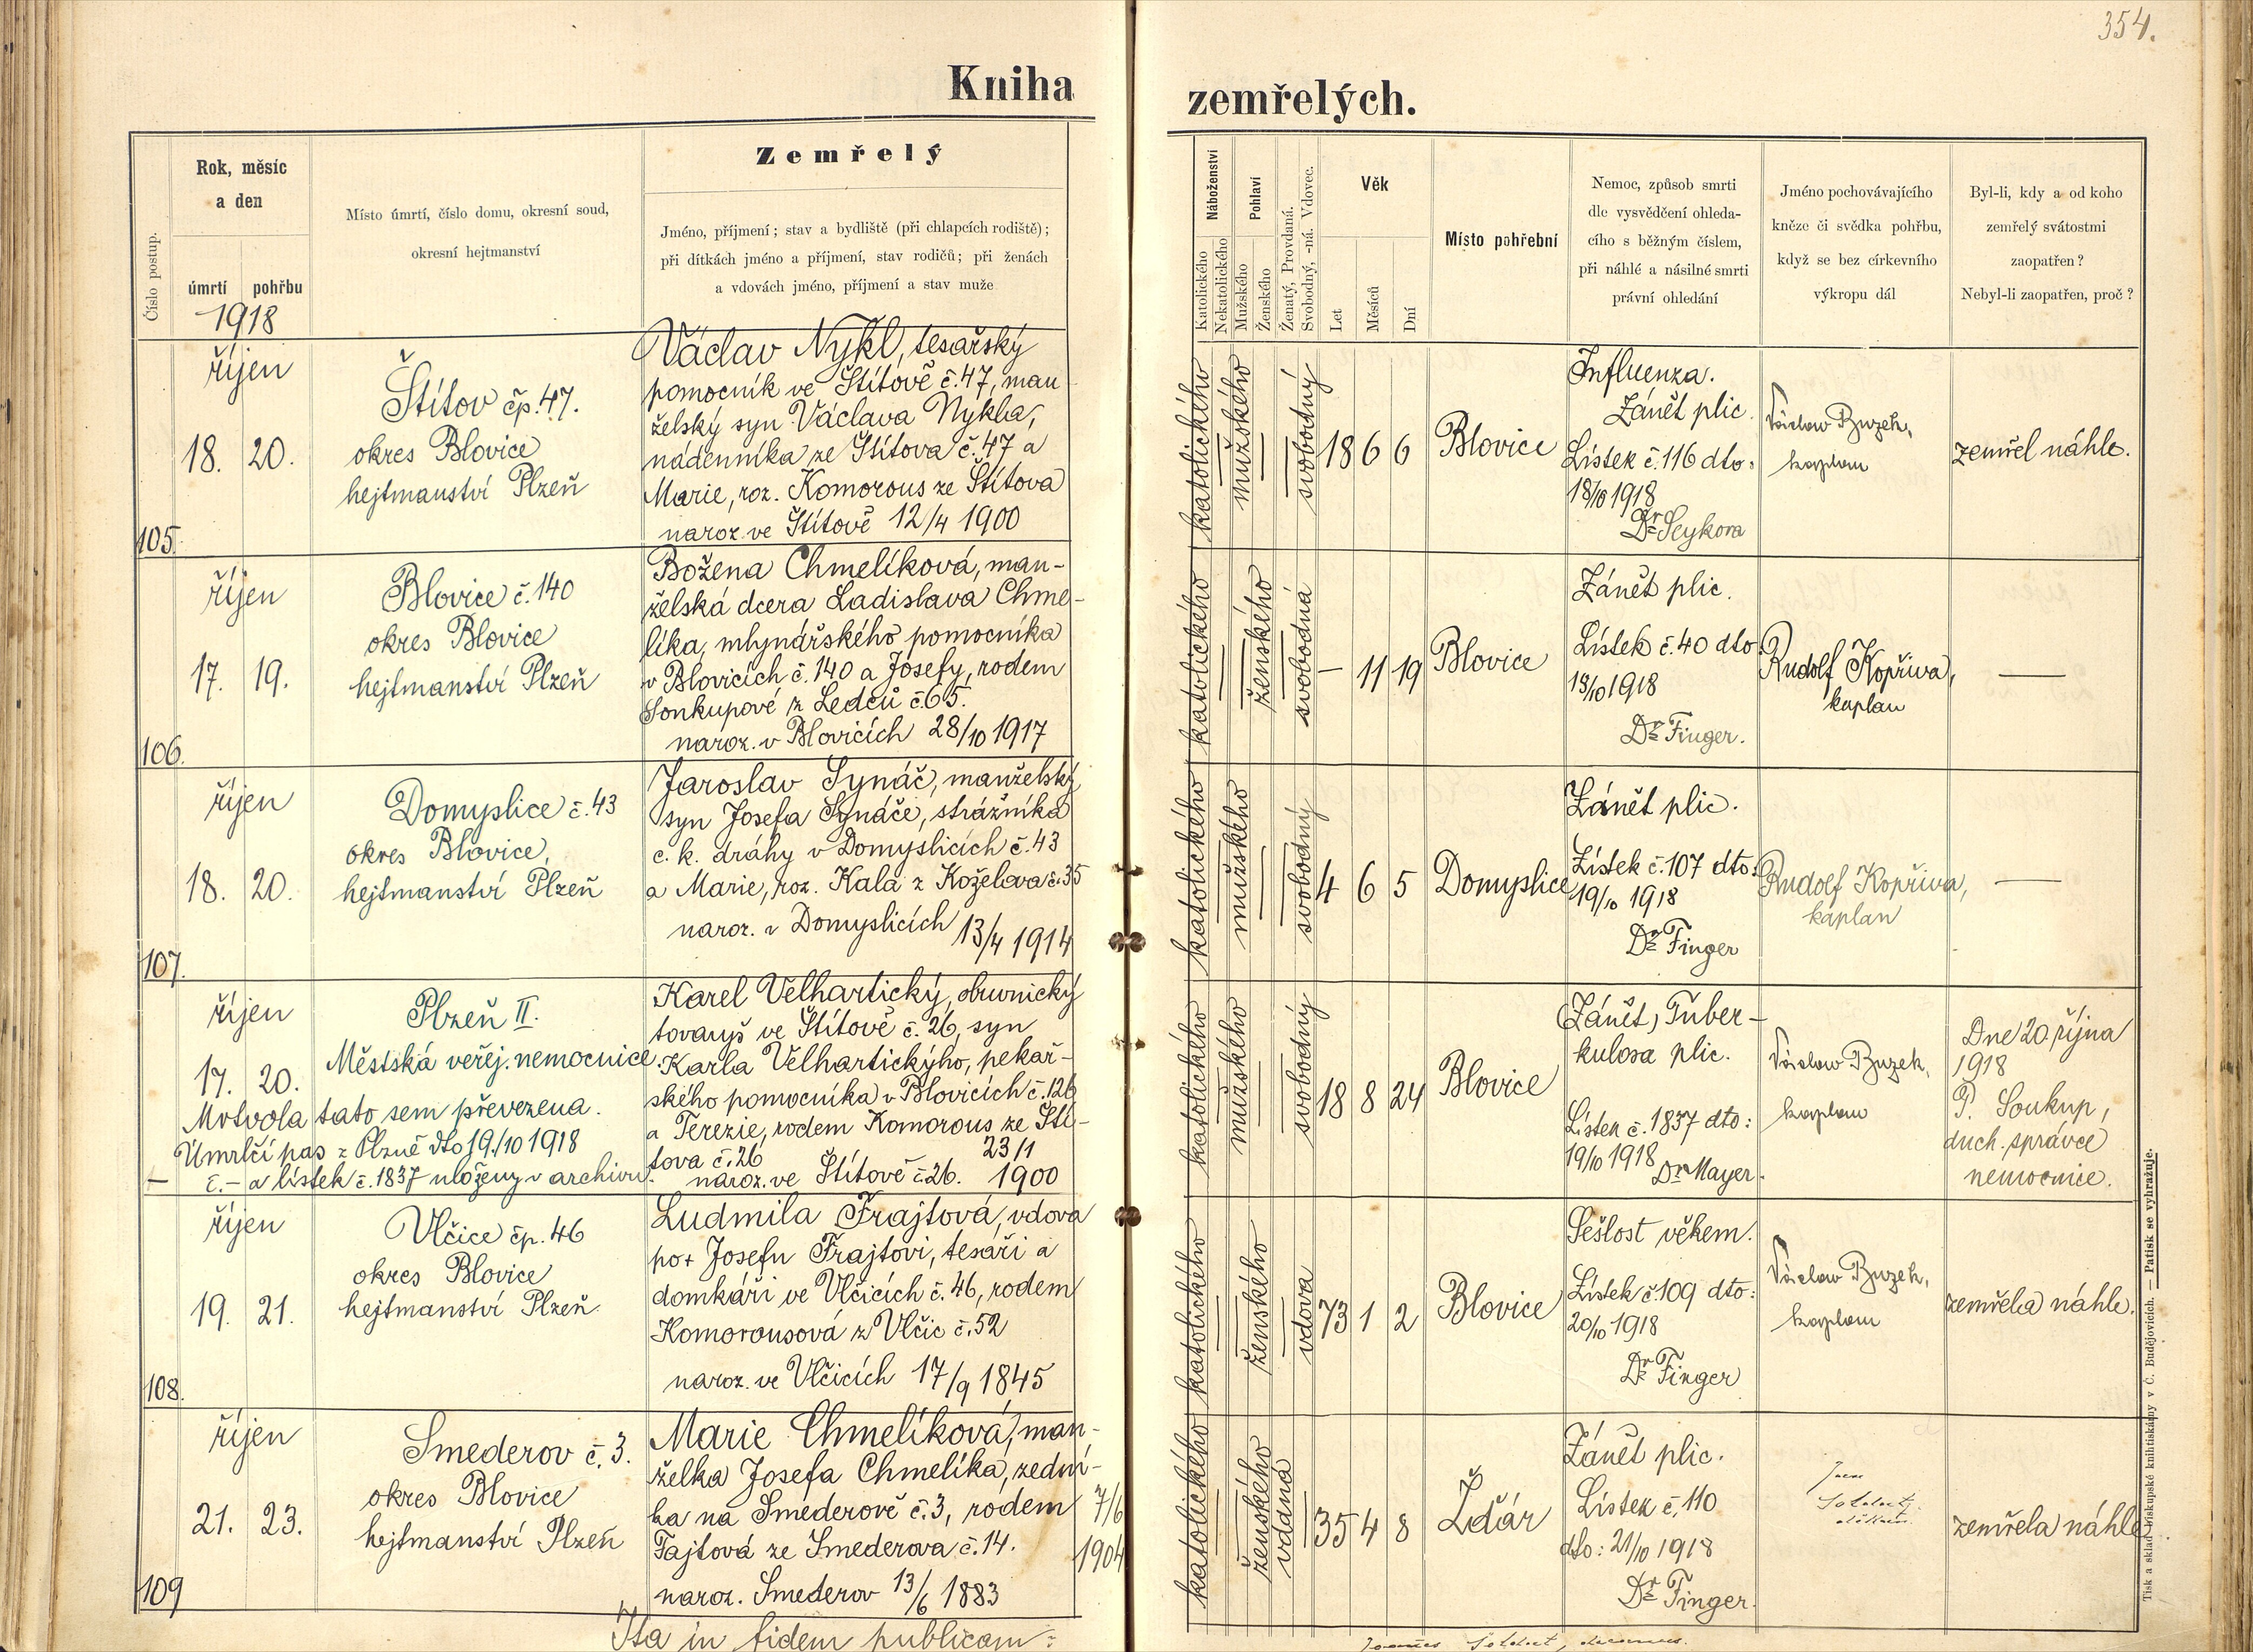 354.
Kniha zemřelých.
Číslo postup.
Rok, měsíc
a den
úmrtí
pohřbu
1918
Místo úmrtí, číslo domu, okresní soud,
okresní hejtmanství
Zemřelý
Jméno, příjmení; stav a bydliště (při chlapcích rodiště);
při dítkách jméno a příjmení, stav rodičů; při ženách
a vdovách jméno, příjmení a stav muže
Náboženství
Katolického
Nekatolického
Pohlaví
Mužského
Ženského
Ženatý, Provdaná.
Svobodný, -ná. Vdovec.
Věk
Let
Měsíců
Dní
Místo pohřební
Nemoc, způsob smrti
dle vysvědčení ohleda-
cího s běžným číslem,
při náhlé a násilné smrti
právní ohledání
Jméno pochovávajícího
kněze či svědka pohřbu,
když se bez církevního
výkropu dál
Byl-li, kdy a od koho
zemřelý svátostmi
zaopatřen?
Nebyl-li zaopatřen, proč?
105.
říjen
18. 20.
Štítov čp. 47.
okres Blovice
hejtmanství Plzeň
Václav Nykl, tesařský
pomocník ve Štítově č. 47, man
želský syn Václava Nykla,
nádenníka ze Štítova č. 47 a
Marie, roz. Komorous ze Štítova
naroz. ve Štítově 12/4 1900
katolického
mužského
svobodný
18 6 6
Blovice
Influenza.
Zánět plic.
Lístek č. 116 dto:
18/10 1918
Dr Seykora
Václav Buzek,
kaplan
zemřel náhle.
106.
říjen
17. 19.
Blovice č. 140
okres Blovice
hejtmanství Plzeň
Božena Chmelíková, man-
želská dcera Ladislava Chme-
líka, mlynářského pomocníka
v Blovicích č. 140 a Josefy, rodem
Sonkupové z Ledců č. 65.
naroz. v Blovicích 28/10 1917
katolického
ženského
svobodná
— 11 19
Blovice
Zánět plic.
Lístek č. 40 dto
18/10 1918
Dr Finger.
Rudolf Kopřiva,
kaplan
—
107.
říjen
18. 20.
Domyslice č. 43
okres Blovice,
hejtmanství Plzeň
Jaroslav Synáč, manželský
syn Josefa Synáče, strážníka
c. k. dráhy v Domyslicích č. 43
a Marie, roz. Kalá z Koželova č. 35
naroz. v Domyslicích 13/4 1914
katolického
mužského
svobodný
4 6 5
Domyslice
Zánět plic.
Lístek č. 107 dto:
19/10 1918
Dr Finger
Rudolf Kopřiva,
kaplan
—
říjen
17. 20.
Plzeň II.
Městská veřej. nemocnice
Mrtvola tato sem převezena.
Úmrlčí pas z Plzně dto 19/10 1918
č. — a lístek č. 1837 uloženy v archivu.
—
Karel Velhartický, obuvnický
tovaryš ve Štítově č. 26, syn
Karla Velhartického, pekař-
ského pomocníka v Blovicích č. 126
a Terezie, rodem Komorous ze Ští-
tova č. 26 23/1
naroz. ve Štítově č. 26. 1900
katolického
mužského
svobodný
18 8 24
Blovice
Zánět, Tuber-
kulosa plic.
Lístek č. 1837 dto:
19/10 1918
Dr Mayer.
Václav Buzek,
kaplan
Dne 20. října
1918
P. Soukup,
duch. správce
nemocnice.
108.
říjen
19. 21.
Vlčice čp. 46
okres Blovice
hejtmanství Plzeň.
Ludmila Frajtová, vdova
po + Josefu Frajtovi, tesaři a
domkáři ve Vlčicích č. 46, rodem
Komorousová z Vlčic č. 52
naroz. ve Vlčicích 17/9 1845
katolického
ženského
vdova
73 1 2
Blovice
Sešlost věkem.
Lístek č. 109 dto:
20/10 1918
Dr Finger
Václav Buzek,
kaplan
zemřela náhle.
109
říjen
21. 23.
Smederov č. 3.
okres Blovice
hejtmanství Plzeň
Marie Chmelíková, man-
želka Josefa Chmelíka, zední-
ka na Smederově č. 3, rodem 7/6
Fajtová ze Smederova č. 14. 1904
naroz. Smederov 13/6 1883
katolického
ženského
vdaná
35 4 8
Ždár
Zánět plic.
Lístek č. 110
dto: 21/10 1918
Dr Finger.
zemřela náhle
Ita in fidem publicam:
Tisk a sklad biskupské knihtiskárny v Č. Budějovicích. — Patisk se vyhražuje.